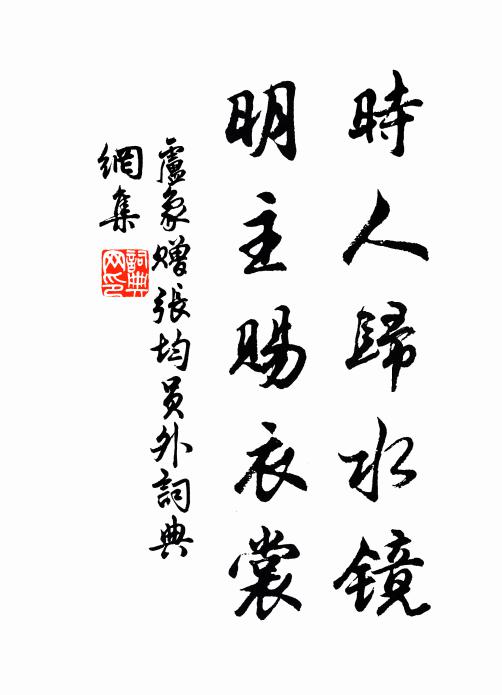 時人歸水镜
明主賜衣裳
盧象赠張均員外詞典
網集
詞典
网印